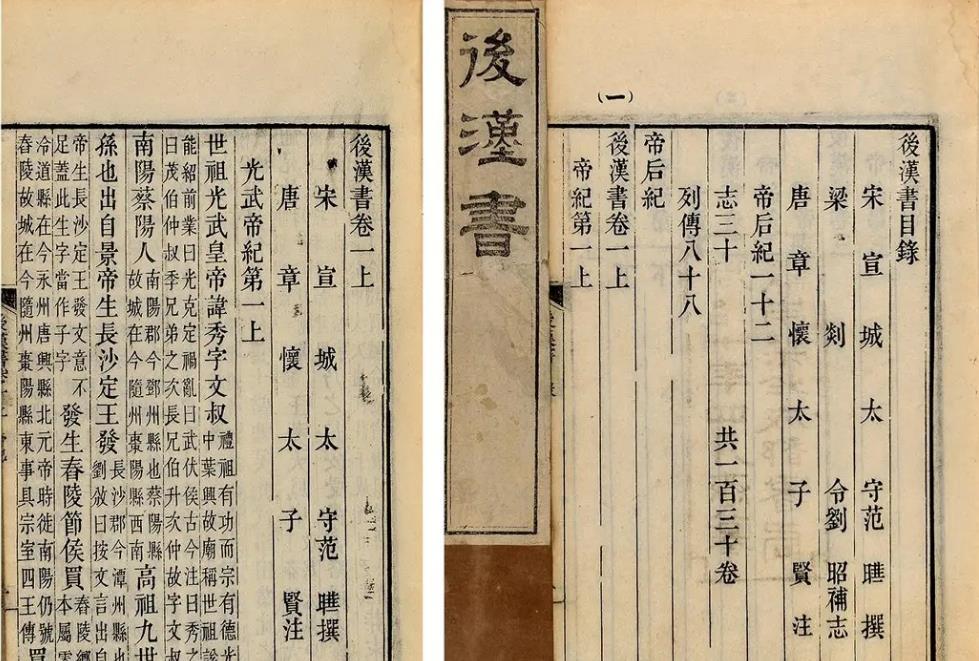 後漢書目錄
宋宣城太守范曄撰
梁剡令劉昭補志
唐章懷太子賢注
帝后紀一十二
志三十 共一百三十卷
列傳八十八
帝后紀
後漢書卷一上
(一)
帝紀第一上
後漢書
後漢書卷一上
宋宣城太守范曄撰
唐章懷太子賢注
光武帝紀第一上
世祖光武皇帝諱秀字文叔禮祖有功而宗有德光中葉興故廟稱世祖諡
能紹前業曰光克定禍亂曰武伏侯古今注曰秀之
曰茂伯仲叔季兄弟之次長兄伯升次仲故字文叔
南陽蔡陽人南陽郡今鄧州縣也蔡陽縣故城在今隨州棗陽縣西南高祖九世
孫也出自景帝生長沙定王發長沙郡今潭州縣也劉攽曰按文言出自
帝生長沙定王發文意不足蓋此生字當作子字發生舂陵節侯買舂陵本屬零
泠道縣在今永州唐興縣北元帝時徙南陽仍號
舂陵故城在今隨州棗陽縣東事具宗室四王傳買